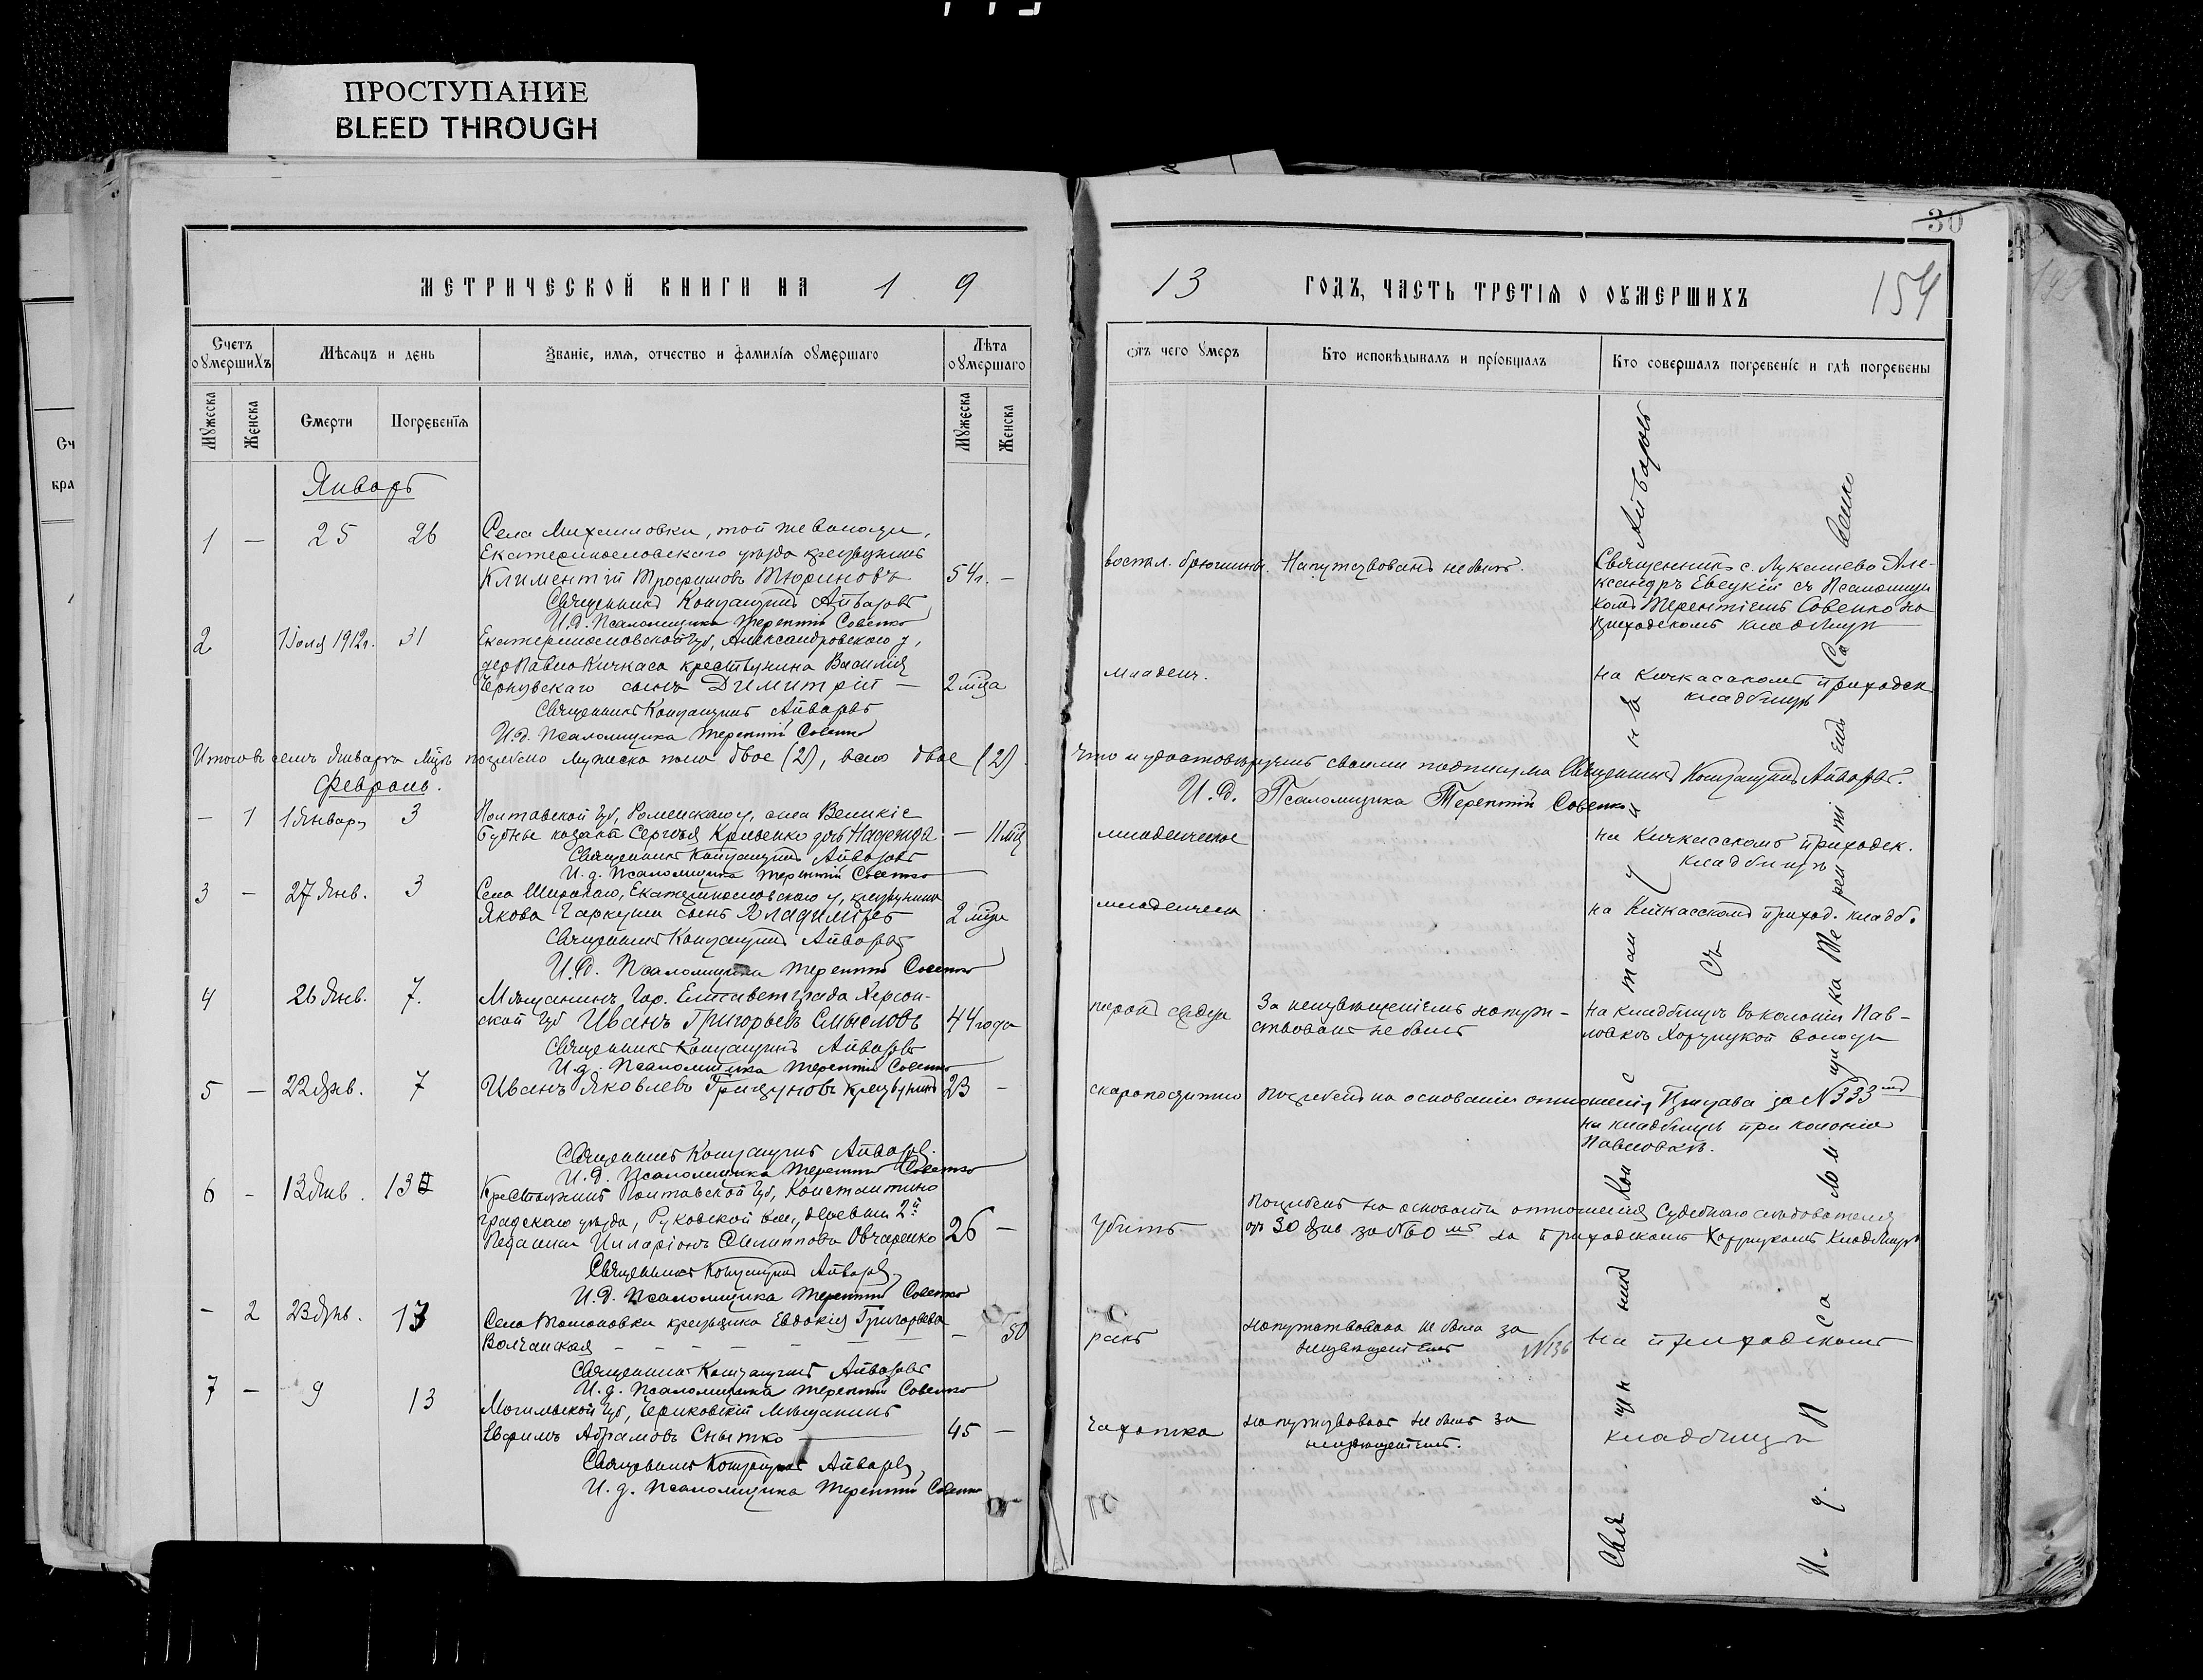 ПРОСТУПАНИЕ
BLEED THROUGH
30
МЕТРИЧЕСКОЙ КНИГИ НА 1 9
13 ГОДЪ, ЧАСТЬ ТРЕТІЯ О ОУМЕРШИХЪ
154
Счетъ оумершихъ
Мѣсяцъ и день
Званіе, имя, отчество и фамилія оумершаго
Лѣта оумершаго
отъ чего умеръ
Кто исповѣдывалъ и пріобщалъ
Кто совершалъ погребеніе и гдѣ погребены
Мужеска
Женска
Смерти
Погребенія
Мужеска
Женска
Январь
1 — 25 26
Села Михайловки, той же волости,
Екатеринославскаго уѣзда крестьянинъ
Климентій Трофимовъ Тюриновъ 54г. —
Священникъ Константинъ Айвазовъ
И.д. Псаломщика Терентій Совенко
воспал. брюшины. Напутствованъ не былъ.
Священникъ с. Лукашево Але-
ксандръ Евецкій съ Псаломщи
комъ Терентіемъ Совенко на
приходскомъ кладбищѣ
2 1912г. 31
Екатеринославской губ, Александровскаго у,
дер Павло Кичкаса крестьянина Василія
сынъ Димитрій — 2 мца
Священникъ Константинъ Айвазовъ
И.д. Псаломщика Терентій Совенко
младенч.
на Кичкасскомъ приходск
кладбищѣ
Итого въ семъ Январѣ мцѣ погребено мужеска пола двое (2), всего двое (2).
что и удостовѣряемъ своими подписями Священникъ Константинъ Айвазовъ.
И.д. Псаломщика Терентій Совенко
Февраль.
— 1 1 Январ 3
Полтавской губ, Роменскаго у, села Великіе
Бубны казака Сергѣя дочь Надежда — 11 мц
Священникъ Константинъ Айвазовъ
И.д. Псаломщика Терентій Совенко
младенческое
на Кичкасскомъ приходск.
кладбищѣ
3 — 27 Янв. 3
Села Широкаго, Екатеринославскаго у, крестьянина
Якова Гаркуши сынъ Владиміръ 2 мца
Священникъ Константинъ Айвазовъ
И.д. Псаломщика Терентій Совенко
младенческ
на Кичкасскомъ приход. кладб.
4 26 Янв. 7.
Мѣщанинъ гор. Елисаветграда Херсон-
ской губ Иванъ Григорьевъ Смысловъ 44 года
Священникъ Константинъ Айвазовъ
И.д. Псаломщика Терентій Совенко
За неизвѣщеніемъ напут-
ствованъ не былъ
на кладбищѣ въ колоніи Пав-
ловкѣ Хортицкой волости
5 — 22 Янв. 7
Иванъ Яковлевъ крестьянинъ 23 —
Священникъ Константинъ Айвазовъ.
И.д. Псаломщика Терентій Совенко
скоропостижно
Погребенъ на основаніи отношенія Пристава за №333
на кладбищѣ при колоніи
Павловкѣ.
6 — 13 Янв. 13
Крестьянинъ Полтавской губ, Константино
градскаго уѣзда, Руновской вол, деревни 2й
Илларіонъ Филипповъ Овчаренко 26 —
Священникъ Константинъ Айвазовъ
И.д. Псаломщика Терентій Совенко
Убитъ
Погребенъ на основаніи отношенія Судебнаго слѣдователя
отъ 30 Янв за №60 на приходскомъ Хортицкомъ кладбищѣ
— 2 23 Янв. 13
Села Томаковки крестьянка Евдокія Григорьева
Волчанская — 50
Священникъ Константинъ Айвазовъ
И.д. Псаломщика Терентій Совенко
ракъ
напутствована не была за
неизвѣщеніемъ №136
на приходскомъ
7 — 9 13
Могилевской губ, Чериковскій мѣщанинъ
Ефимъ Абрамовъ Снытко 45 —
Священникъ Константинъ Айвазовъ,
И.д. Псаломщика Терентій Совенко
Чахотка
напутствованъ не былъ за
неизвѣщеніемъ.
кладбищѣ
Священникъ Константинъ Айвазовъ
съ
И.д. Псаломщика Терентіемъ Совенко